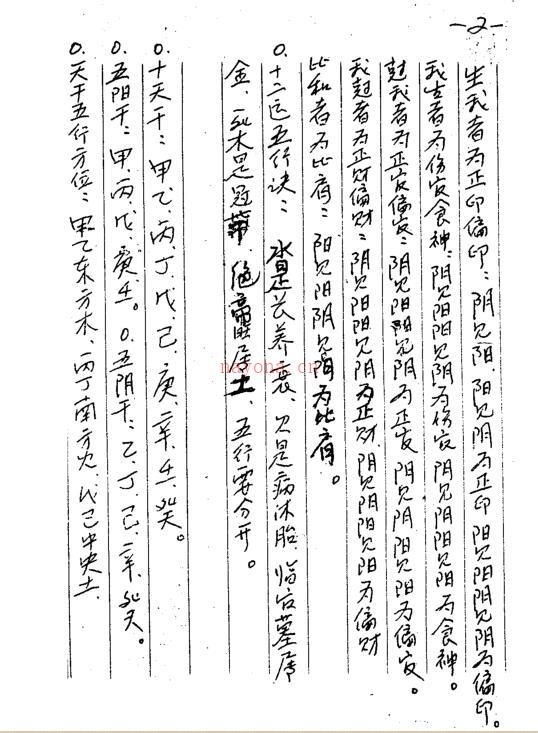 —2—
生我者为正印偏印：阴见阳、阳见阴为正印 阳见阳阴见阴为偏印。
我生者为伤官食神：阴见阳阳见阴为伤官 阴见阴阳见阳为食神。
尅我者为正官偏官：阴见阳阳见阴为正官 阴见阴阳见阳为偏官。
我尅者为正财偏财：阴见阳阳见阴为正财、阴见阴阳见阳为偏财
比和者为比肩：阳见阳阴见阴为比肩。
0. 十二运五行诀： 水是长养衰、火是病沐胎、临官墓属
金、木是冠带、绝 居土、五行要分开。
0. 十天干：甲、乙、丙、丁、戊、己、庚、辛、壬、癸。
0. 五阳干：甲、丙、戊、庚、壬。 0. 五阴干：乙、丁、己、辛、癸。
0. 天干五行方位：甲乙东方木、丙丁南方火、戊己中央土、
nayona.cn